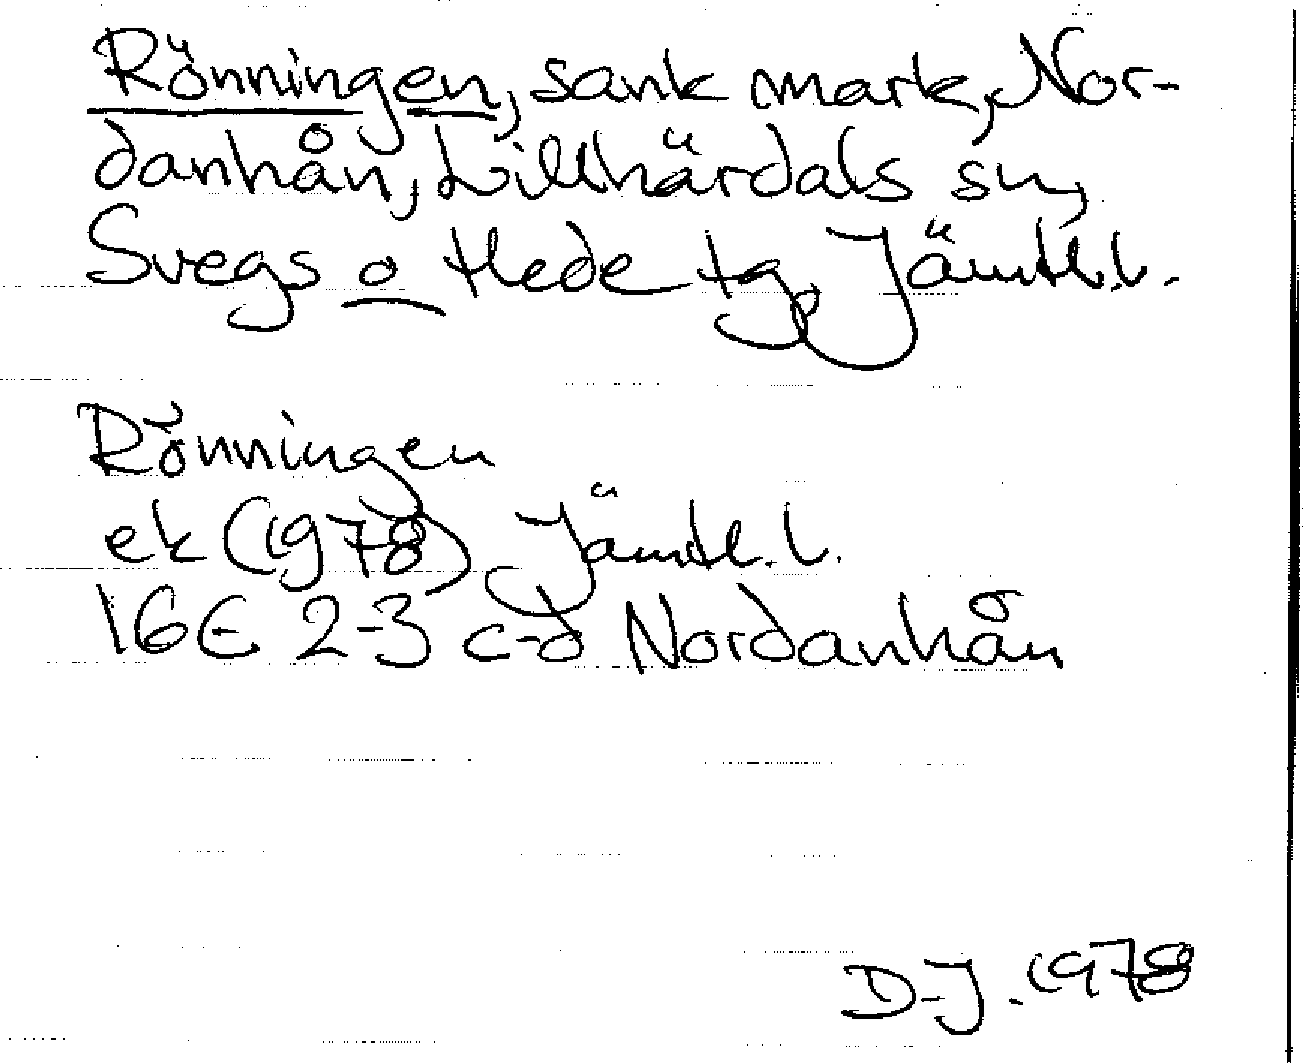 Rönningen, sank mark, Nor-
danhån, Lillhärdals sn,
Svegs o Hede tg, Jämtl.l.
Rönningen
ek (1978) Jämtl.l.
16E 2-3 c-d Nordanhån
D-J. 1978